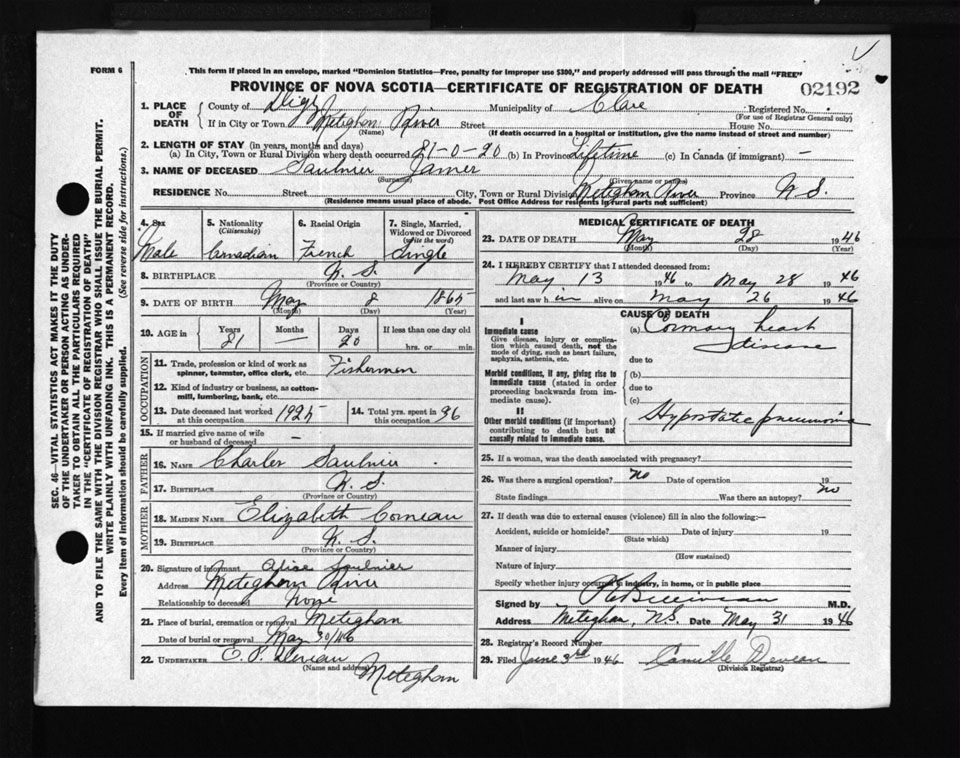 FORM 6
This form if placed in an envelope, marked "Dominion Statistics—Free, penalty for improper use $300," and properly addressed will pass through the mail "FREE"
PROVINCE OF NOVA SCOTIA—CERTIFICATE OF REGISTRATION OF DEATH 02192
1. PLACE OF DEATH County of Digby Municipality of Clare Registered No.
(For use of Registrar General only)
If in City or Town Meteghan River Street House No.
(Name) (If death occurred in a hospital or institution, give the name instead of street and number)
2. LENGTH OF STAY (in years, months and days)
(a) In City, Town or Rural Division where death occurred 81-0-20 (b) In Province Lifetime (c) In Canada (if immigrant) —
3. NAME OF DECEASED Saulnier James
(Surname) (Given name or names)
RESIDENCE No. Street City, Town or Rural Division Meteghan River Province N.S.
(Residence means usual place of abode. Post Office Address for residents in rural parts not sufficient)
4. Sex 5. Nationality (Citizenship) 6. Racial Origin 7. Single, Married, Widowed or Divorced (write the word)
Male Canadian French Single
8. BIRTHPLACE N.S.
(Province or Country)
9. DATE OF BIRTH May 8 1865
(Month) (Day) (Year)
10. AGE in Years Months Days If less than one day old
81 — 20 hrs. or min.
OCCUPATION
11. Trade, profession or kind of work as spinner, teamster, office clerk, etc. Fisherman
12. Kind of industry or business, as cotton-mill, lumbering, bank, etc.
13. Date deceased last worked at this occupation 1925 14. Total yrs. spent in this occupation 36
15. If married give name of wife or husband of deceased —
FATHER
16. NAME Charles Saulnier
17. BIRTHPLACE N.S.
(Province or Country)
MOTHER
18. MAIDEN NAME Elizabeth Comeau
19. BIRTHPLACE N.S.
(Province or Country)
20. Signature of informant Alice Saulnier
Address Meteghan River
Relationship to deceased none
21. Place of burial, cremation or removal Meteghan
Date of burial or removal May 30/46
22. UNDERTAKER
(Name and address) Meteghan
MEDICAL CERTIFICATE OF DEATH
23. DATE OF DEATH May 28 1946
(Month) (Day) (Year)
24. I HEREBY CERTIFY that I attended deceased from:
May 13 1946 to May 28 1946
and last saw him alive on May 26 1946
CAUSE OF DEATH
I
Immediate cause
Give disease, injury or complication which caused death, not the mode of dying, such as heart failure, asphyxia, asthenia, etc.
(a) Coronary heart disease
due to
Morbid conditions, if any, giving rise to immediate cause (stated in order proceeding backwards from immediate cause).
(b)
due to
(c)
II
Other morbid conditions (if important) contributing to death but not causally related to immediate cause.
Hypostatic pneumonia
25. If a woman, was the death associated with pregnancy?
26. Was there a surgical operation? no Date of operation 19
State findings Was there an autopsy? no
27. If death was due to external causes (violence) fill in also the following:—
Accident, suicide or homicide? Date of injury 19
(State which)
Manner of injury
(How sustained)
Nature of injury
Specify whether injury occurred in industry, in home, or in public place
Signed by M.D.
Address Meteghan, N.S. Date May 31 1946
28. Registrar's Record Number
29. Filed June 3rd 1946 Camille Deveau
(Division Registrar)
SEC. 46—VITAL STATISTICS ACT MAKES IT THE DUTY
OF THE UNDERTAKER OR PERSON ACTING AS UNDER-
TAKER TO OBTAIN ALL THE PARTICULARS REQUIRED
IN THE "CERTIFICATE OF REGISTRATION OF DEATH"
AND TO FILE THE SAME WITH THE DIVISION REGISTRAR WHO SHALL ISSUE THE BURIAL PERMIT.
WRITE PLAINLY WITH UNFADING INK. THIS IS A PERMANENT RECORD.
Every item of information should be carefully supplied. (See reverse side for instructions.)